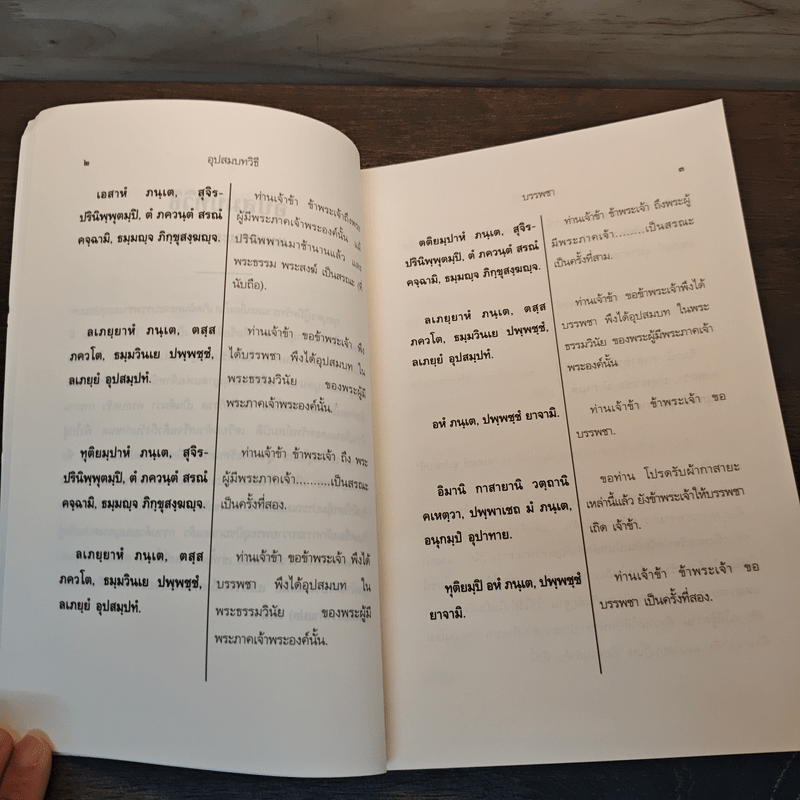 ๒
อุปสมบทวิธี
เอสาหํ ภนฺเต, สุจิร-
ปรินิพฺพุตมฺปิ, ตํ ภควนฺตํ สรณํ
คจฺฉามิ, ธมฺมญฺจ ภิกฺขุสงฺฆญฺจ.
ท่านเจ้าข้า ข้าพระเจ้าถึงพระ
ผู้มีพระภาคเจ้าพระองค์นั้น แม้
ปรินิพพานมาช้านานแล้ว และ
พระธรรม พระสงฆ์ เป็นสรณะ (ที่
นับถือ).
ลเภยฺยาหํ ภนฺเต, ตสฺส
ภควโต, ธมฺมวินเย ปพฺพชฺชํ,
ลเภยฺยํ อุปสมฺปทํ.
ท่านเจ้าข้า ขอข้าพระเจ้า พึง
ได้บรรพชา พึงได้อุปสมบท ใน
พระธรรมวินัย ของพระผู้มี
พระภาคเจ้าพระองค์นั้น.
ทุติยมฺปาหํ ภนฺเต, สุจิร-
ปรินิพฺพุตมฺปิ, ตํ ภควนฺตํ สรณํ
คจฺฉามิ, ธมฺมญฺจ ภิกฺขุสงฺฆญฺจ.
ท่านเจ้าข้า ข้าพระเจ้า ถึง พระ
ผู้มีพระภาคเจ้า..........เป็นสรณะ
เป็นครั้งที่สอง.
ลเภยฺยาหํ ภนฺเต, ตสฺส
ภควโต, ธมฺมวินเย ปพฺพชฺชํ,
ลเภยฺยํ อุปสมฺปทํ.
ท่านเจ้าข้า ขอข้าพระเจ้า พึงได้
บรรพชา พึงได้อุปสมบท ใน
พระธรรมวินัย ของพระผู้มี
พระภาคเจ้าพระองค์นั้น.
๓
บรรพชา
ตติยมฺปาหํ ภนฺเต, สุจิร-
ปรินิพฺพุตมฺปิ, ตํ ภควนฺตํ สรณํ
คจฺฉามิ, ธมฺมญฺจ ภิกฺขุสงฺฆญฺจ.
ท่านเจ้าข้า ข้าพระเจ้า ถึงพระผู้
มีพระภาคเจ้า........เป็นสรณะ
เป็นครั้งที่สาม.
ลเภยฺยาหํ ภนฺเต, ตสฺส
ภควโต, ธมฺมวินเย ปพฺพชฺชํ,
ลเภยฺยํ อุปสมฺปทํ.
ท่านเจ้าข้า ขอข้าพระเจ้าพึงได้
บรรพชา พึงได้อุปสมบท ในพระ
ธรรมวินัย ของพระผู้มีพระภาคเจ้า
พระองค์นั้น
อหํ ภนฺเต, ปพฺพชฺชํ ยาจามิ.
ท่านเจ้าข้า ข้าพระเจ้า ขอ
บรรพชา.
อิมานิ กาสายานิ วตฺถานิ
คเหตฺวา, ปพฺพาเชถ มํ ภนฺเต,
อนุกมฺปํ อุปาทาย.
ขอท่าน โปรดรับผ้ากาสายะ
เหล่านี้แล้ว ยังข้าพระเจ้าให้บรรพชา
เถิด เจ้าข้า.
ทุติยมฺปิ อหํ ภนฺเต, ปพฺพชฺชํ
ยาจามิ.
ท่านเจ้าข้า ข้าพระเจ้า ขอ
บรรพชา เป็นครั้งที่สอง.